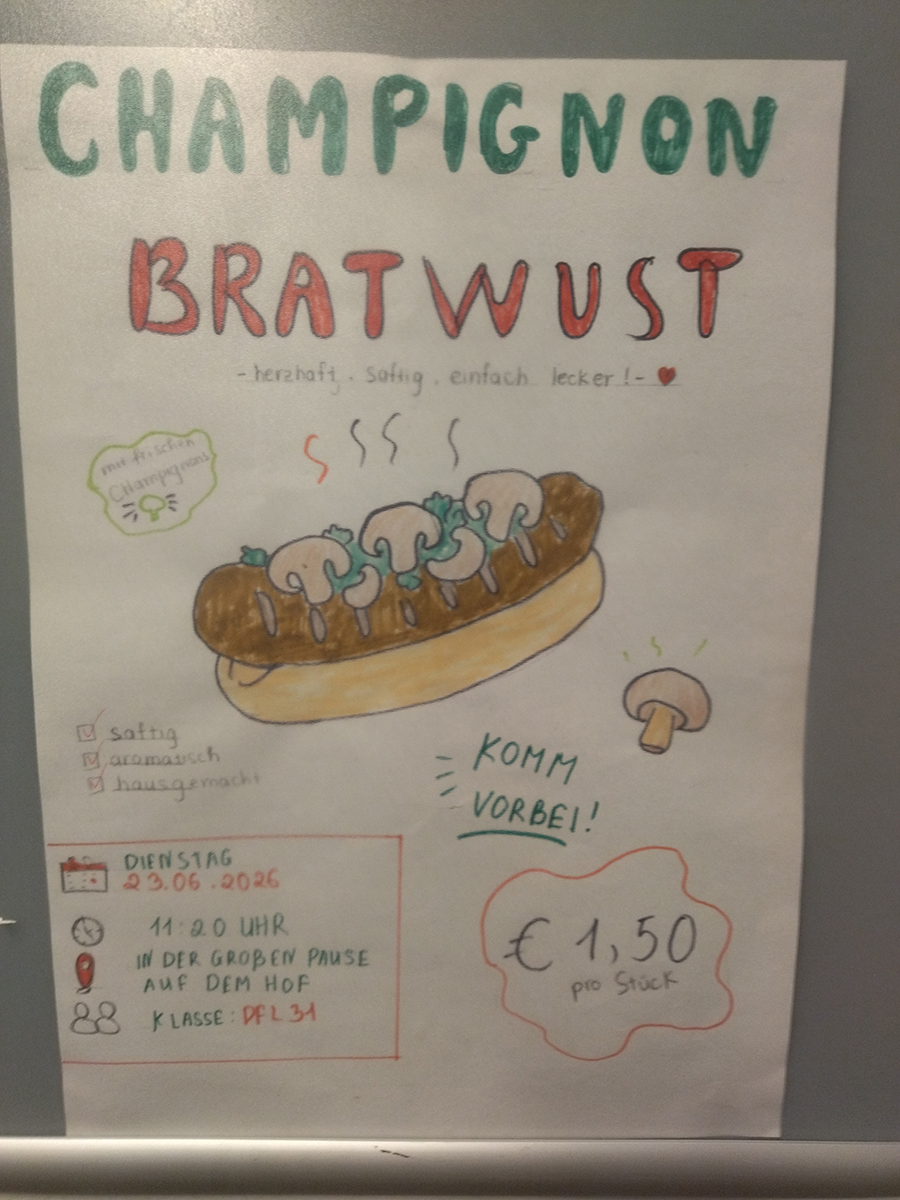 CHAMPIGNON
BRATWUST
- herzhaft . Saftig . einfach lecker ! - ♥
mit frischen
CHampignons
saftig
aromatisch
hausgemacht
KOMM
VORBEI!
DIENSTAG
23.06.2026
11:20 UHR
IN DER GROßEN PAUSE
AUF DEM HOF
KLASSE: DFL 31
€ 1,50
pro Stück